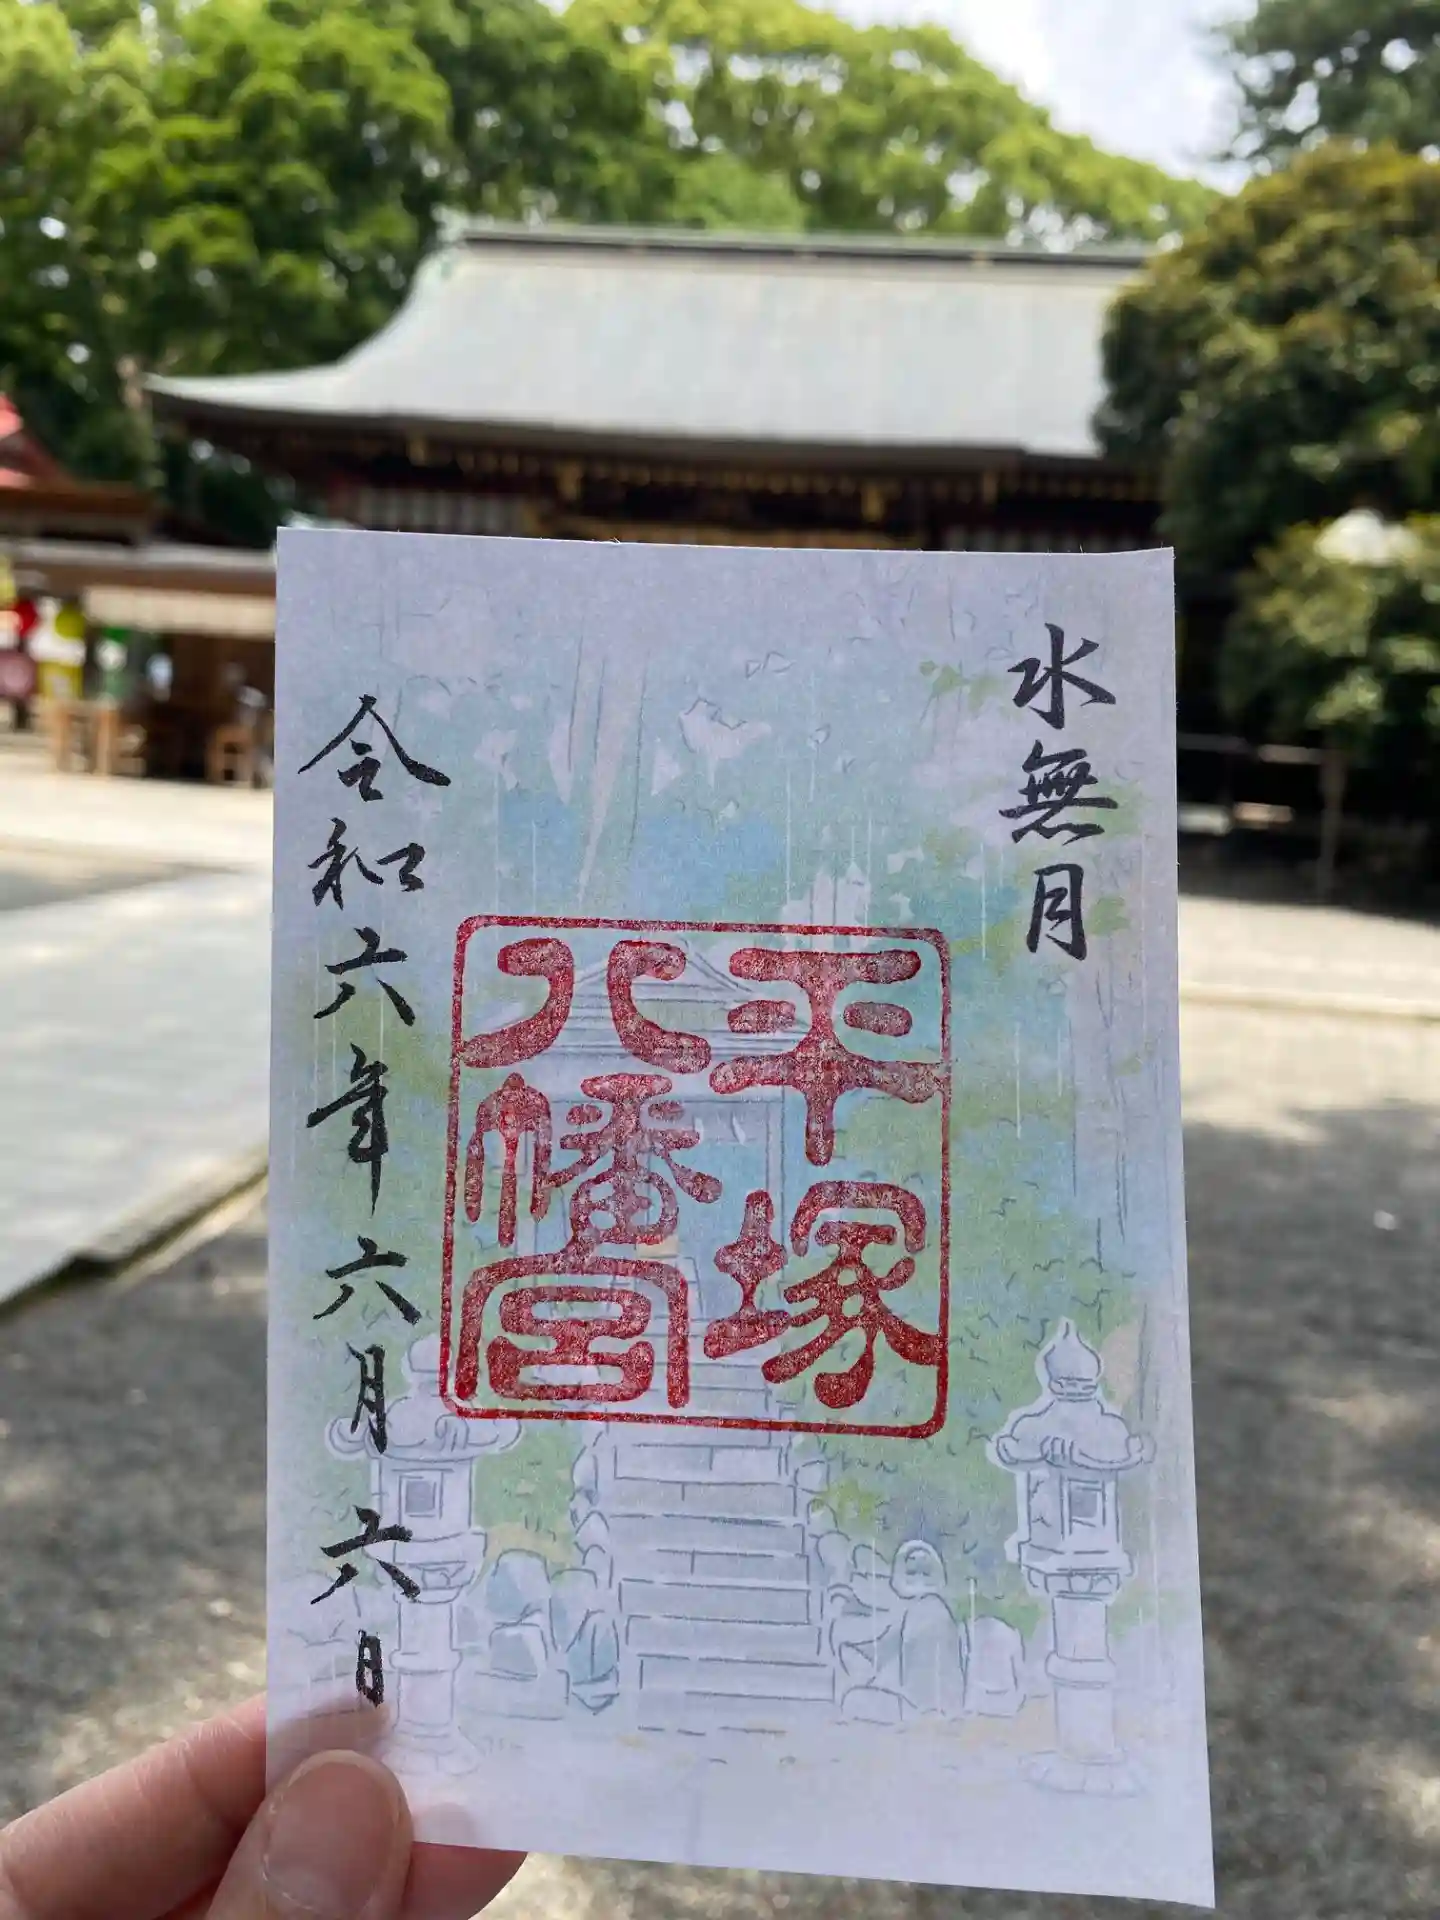 水無月
平塚
八幡宮
令和六年六月六日